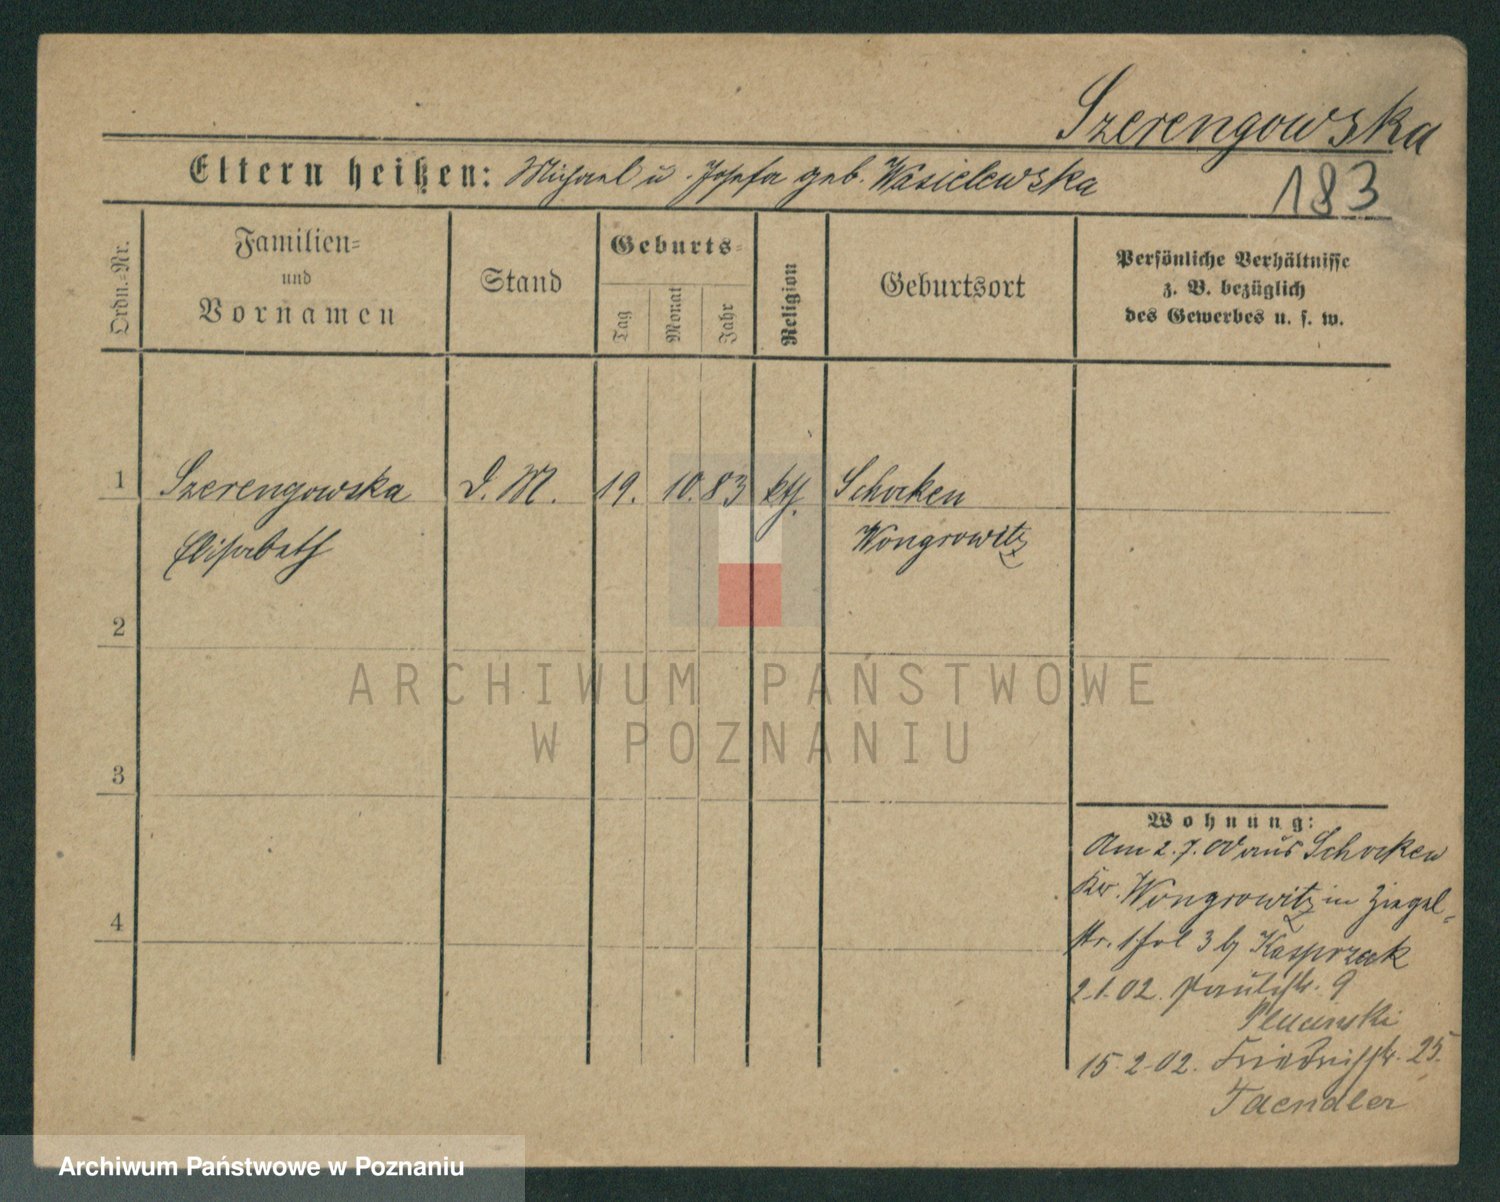 Szerengowska
183
Eltern heißen: Michael u. Josefa geb. Wasielewska
Ordn.=Nr.
Familien=
und
Vornamen
Stand
Geburts=
Tag
Monat
Jahr
Religion
Geburtsort
Persönliche Verhältnisse
z. B. bezüglich
des Gewerbes u. s. w.
1 Szerengowska D. M. 19. 10. 83 kth. Schocken
Elisabeth Wongrowitz
2
3
4
Wohnung:
Am 2.7.00 aus Schocken
Kr. Wongrowitz in Ziegel-
str. 3 b/ Kasprzak
2.1.02. Paulistr. 9
Plucinski
15.2.02. Friedrichstr. 25.
Taendler
ARCHIWUM PAŃSTWOWE
W POZNANIU
Archiwum Państwowe w Poznaniu